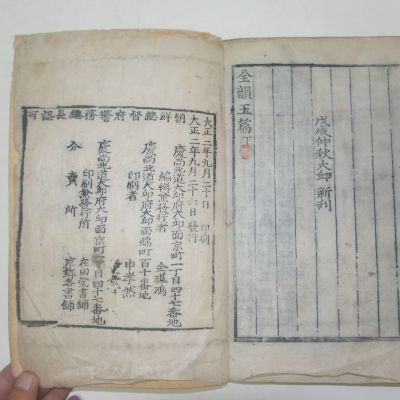 戊戌仲秋大邱 新刊
全韻玉篇 下
朝鮮總督府警務總長認可
大正二年九月二十日 印刷
大正二年九月二十六日 發行
慶尚北道大邱府大邱面京町一丁目四十七番地
編輯兼發行者 金璂鴻
慶尚北道大邱府大邱面錦町百十番地
印刷者 申孝然
慶尚北道大邱府大邱面京町一丁目四十七番地
印刷兼發行所 在田堂書鋪
分賣所 京鄉各書鋪